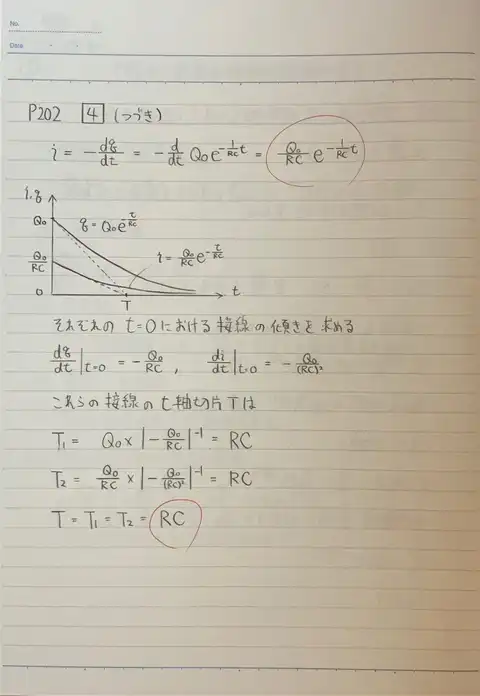 No.
Date
P202 4 (つづき)
i = -dq/dt = -d/dt Q₀e^(-1/RC t) = Q₀/RC e^(-1/RC t)
i, q
Q₀
q = Q₀e^(-t/RC)
Q₀/RC
i = Q₀/RC e^(-t/RC)
0
T
t
それぞれの t=0 における接線の傾きを求める
dq/dt|t=0 = -Q₀/RC , di/dt|t=0 = -Q₀/(RC)²
これらの接線の t軸切片 T は
T₁ = Q₀ × |-Q₀/RC|⁻¹ = RC
T₂ = Q₀/RC × |-Q₀/(RC)²|⁻¹ = RC
T = T₁ = T₂ = RC